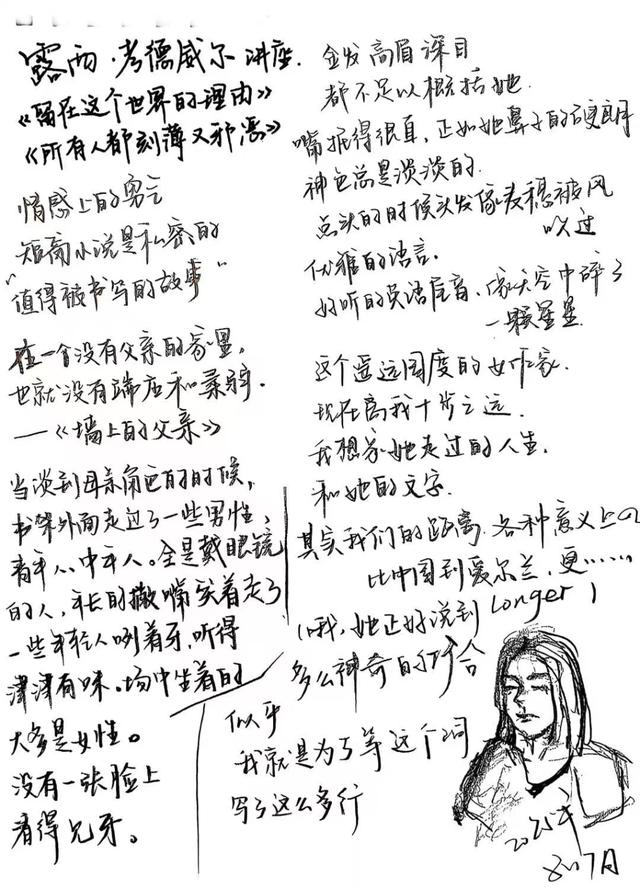 露西·考德威尔 讲座.
《留在这个世界的理由》
《所有人都刻薄又邪恶》
情感上的勇气
短篇小说是私密的
"值得被书写的故事"
在一个没有父亲的家里,
也就没有端店和桑骑.
—《墙上的父亲》
当谈到母亲角色的时候,
书架外面走过了一些男性,
青年人、中年人。全是戴眼镜
的人,年长的撇嘴笑着走了
一些年轻人咧着牙,听得
津津有味。场中坐着的
大多是女性。
没有一张脸上
看得见牙。
金发高眉深目
都不足以概括她.
嘴抿得很直,正如她鼻子的硬朗
神色总是淡淡的.
点头的时候头发像麦穗被风
吹过
优雅的语言.
好听的英语尾音、像天空中碎了
一颗星星.
这个遥远国度的女作家.
现在离我十步之远.
我想象她走过的人生.
和她的文字.
其实我们的距离.各种意义上の
比中国到爱尔兰,更……
(哦,她正好说到 Longer)
多么神奇的巧合
似乎
我就是为了等这个词
写了这么多行
2025年
8.17日